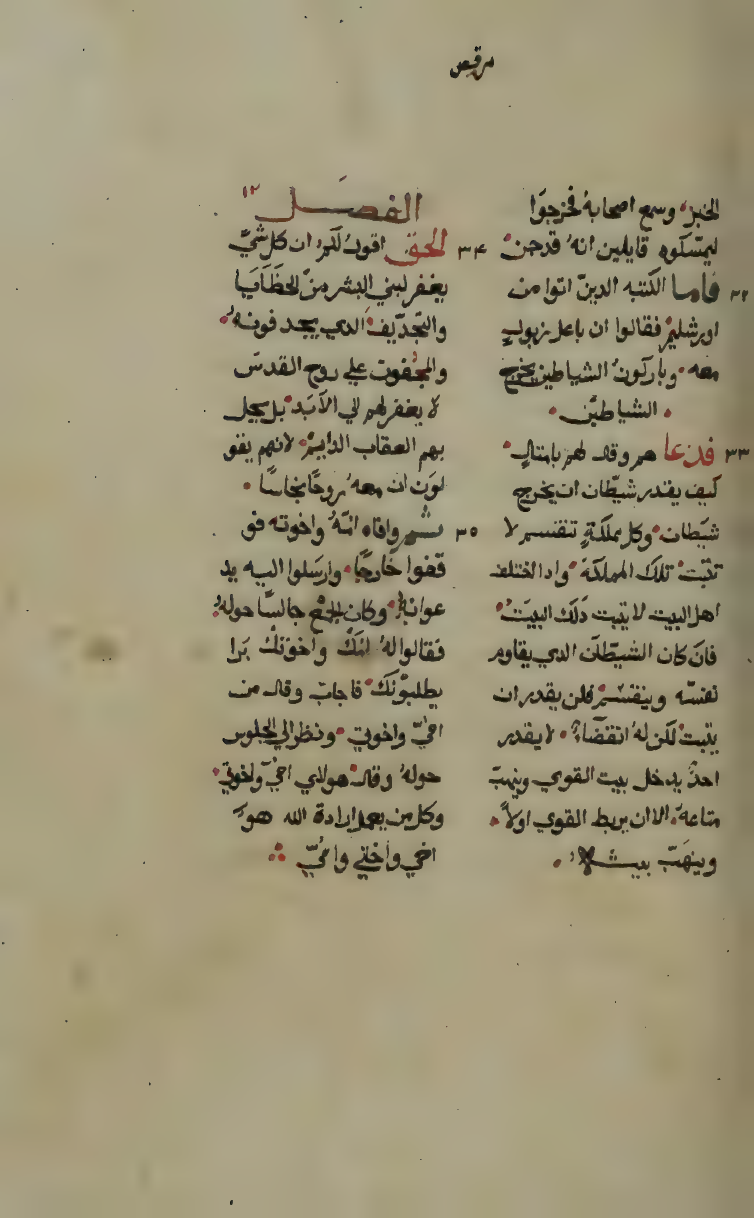 مرقص
الخبز وسمع اصحابه فخرجوا
ليمسكوه قايلين انه قد جن
٣٢ فاما الكتبه الدين اتوا من
اورشليم فقالوا ان باعل زبول
معه وباركون الشياطين يخرج
الشياطين
٣٣ فدعا هم وقال لهم بامثال
كيف يقدر شيطان ان يخرج
شيطان وكل مملكة تنقسم لا
تثبت تلك المملكة وادا اختلف
اهل البيت لا يثبت دلك البيت
فان كان الشيطان الدي يقاوم
نفسه وينقسم فلن يقدر ان
يثبت لكن له انقضا لا يقدر
احد يدخل بيت القوي وينهب
متاعه الا ان يربط القوي اولا
وينهب بيته
الفصل ١٢
٣٤ الحق اقول لكم ان كل شي
يغفر لبني البشر من الخطايا
والتجديف الدي يجدفونه
والمجدفون علي روح القدس
لا يغفر لهم الي الابد بل يحل
بهم العقاب الدايم لانهم يقو
لون ان معه روحا نجاسا
٣٥ ثم وافاه امه واخوته فو
قفوا خارجا وارسلوا اليه يد
عوانه وكان الجمع جالسا حوله
فقالوا له امك واخوتك برا
يطلبونك فاجاب وقال من
امي واخوتي ونظر الي الجلوس
حوله وقال هولاي امي واخوتي
وكل من يعمل ارادة الله هو
اخي واختي وامي